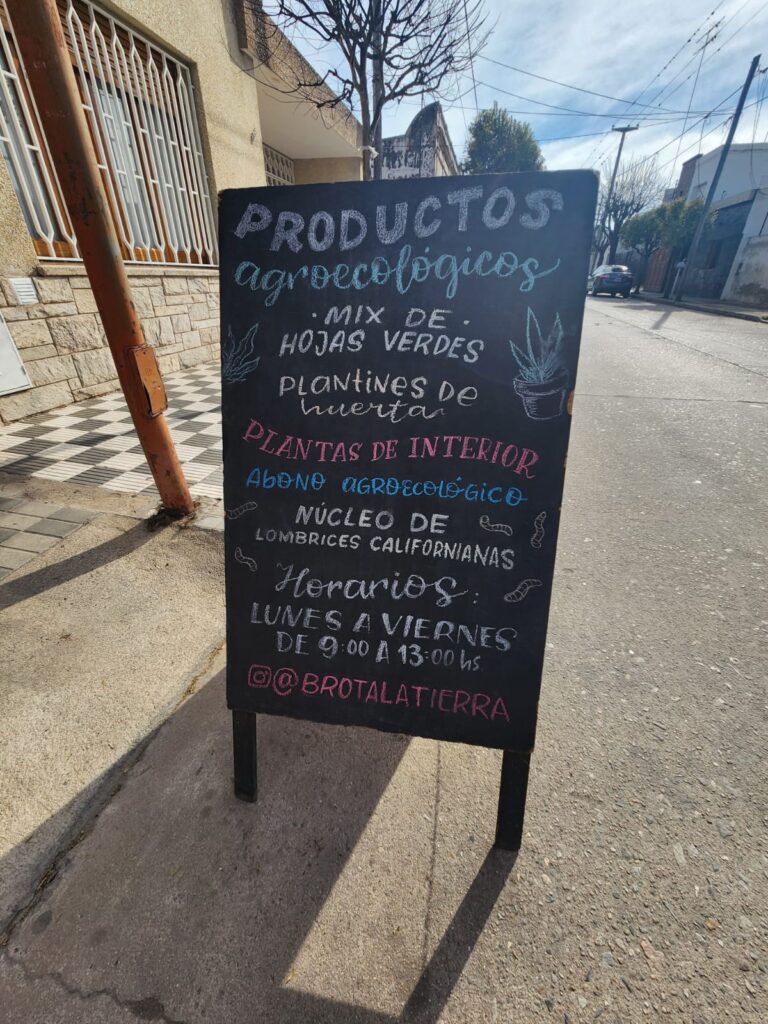 PRODUCTOS
agroecológicos
·MIX DE·
HOJAS VERDES
PLANTINES DE
huerta
PLANTAS DE INTERIOR
ABONO AGROECOLÓGICO
NÚCLEO DE
LOMBRICES CALIFORNIANAS
Horarios:
LUNES A VIERNES
DE 9:00 A 13:00 hs
@BROTALATIERRA